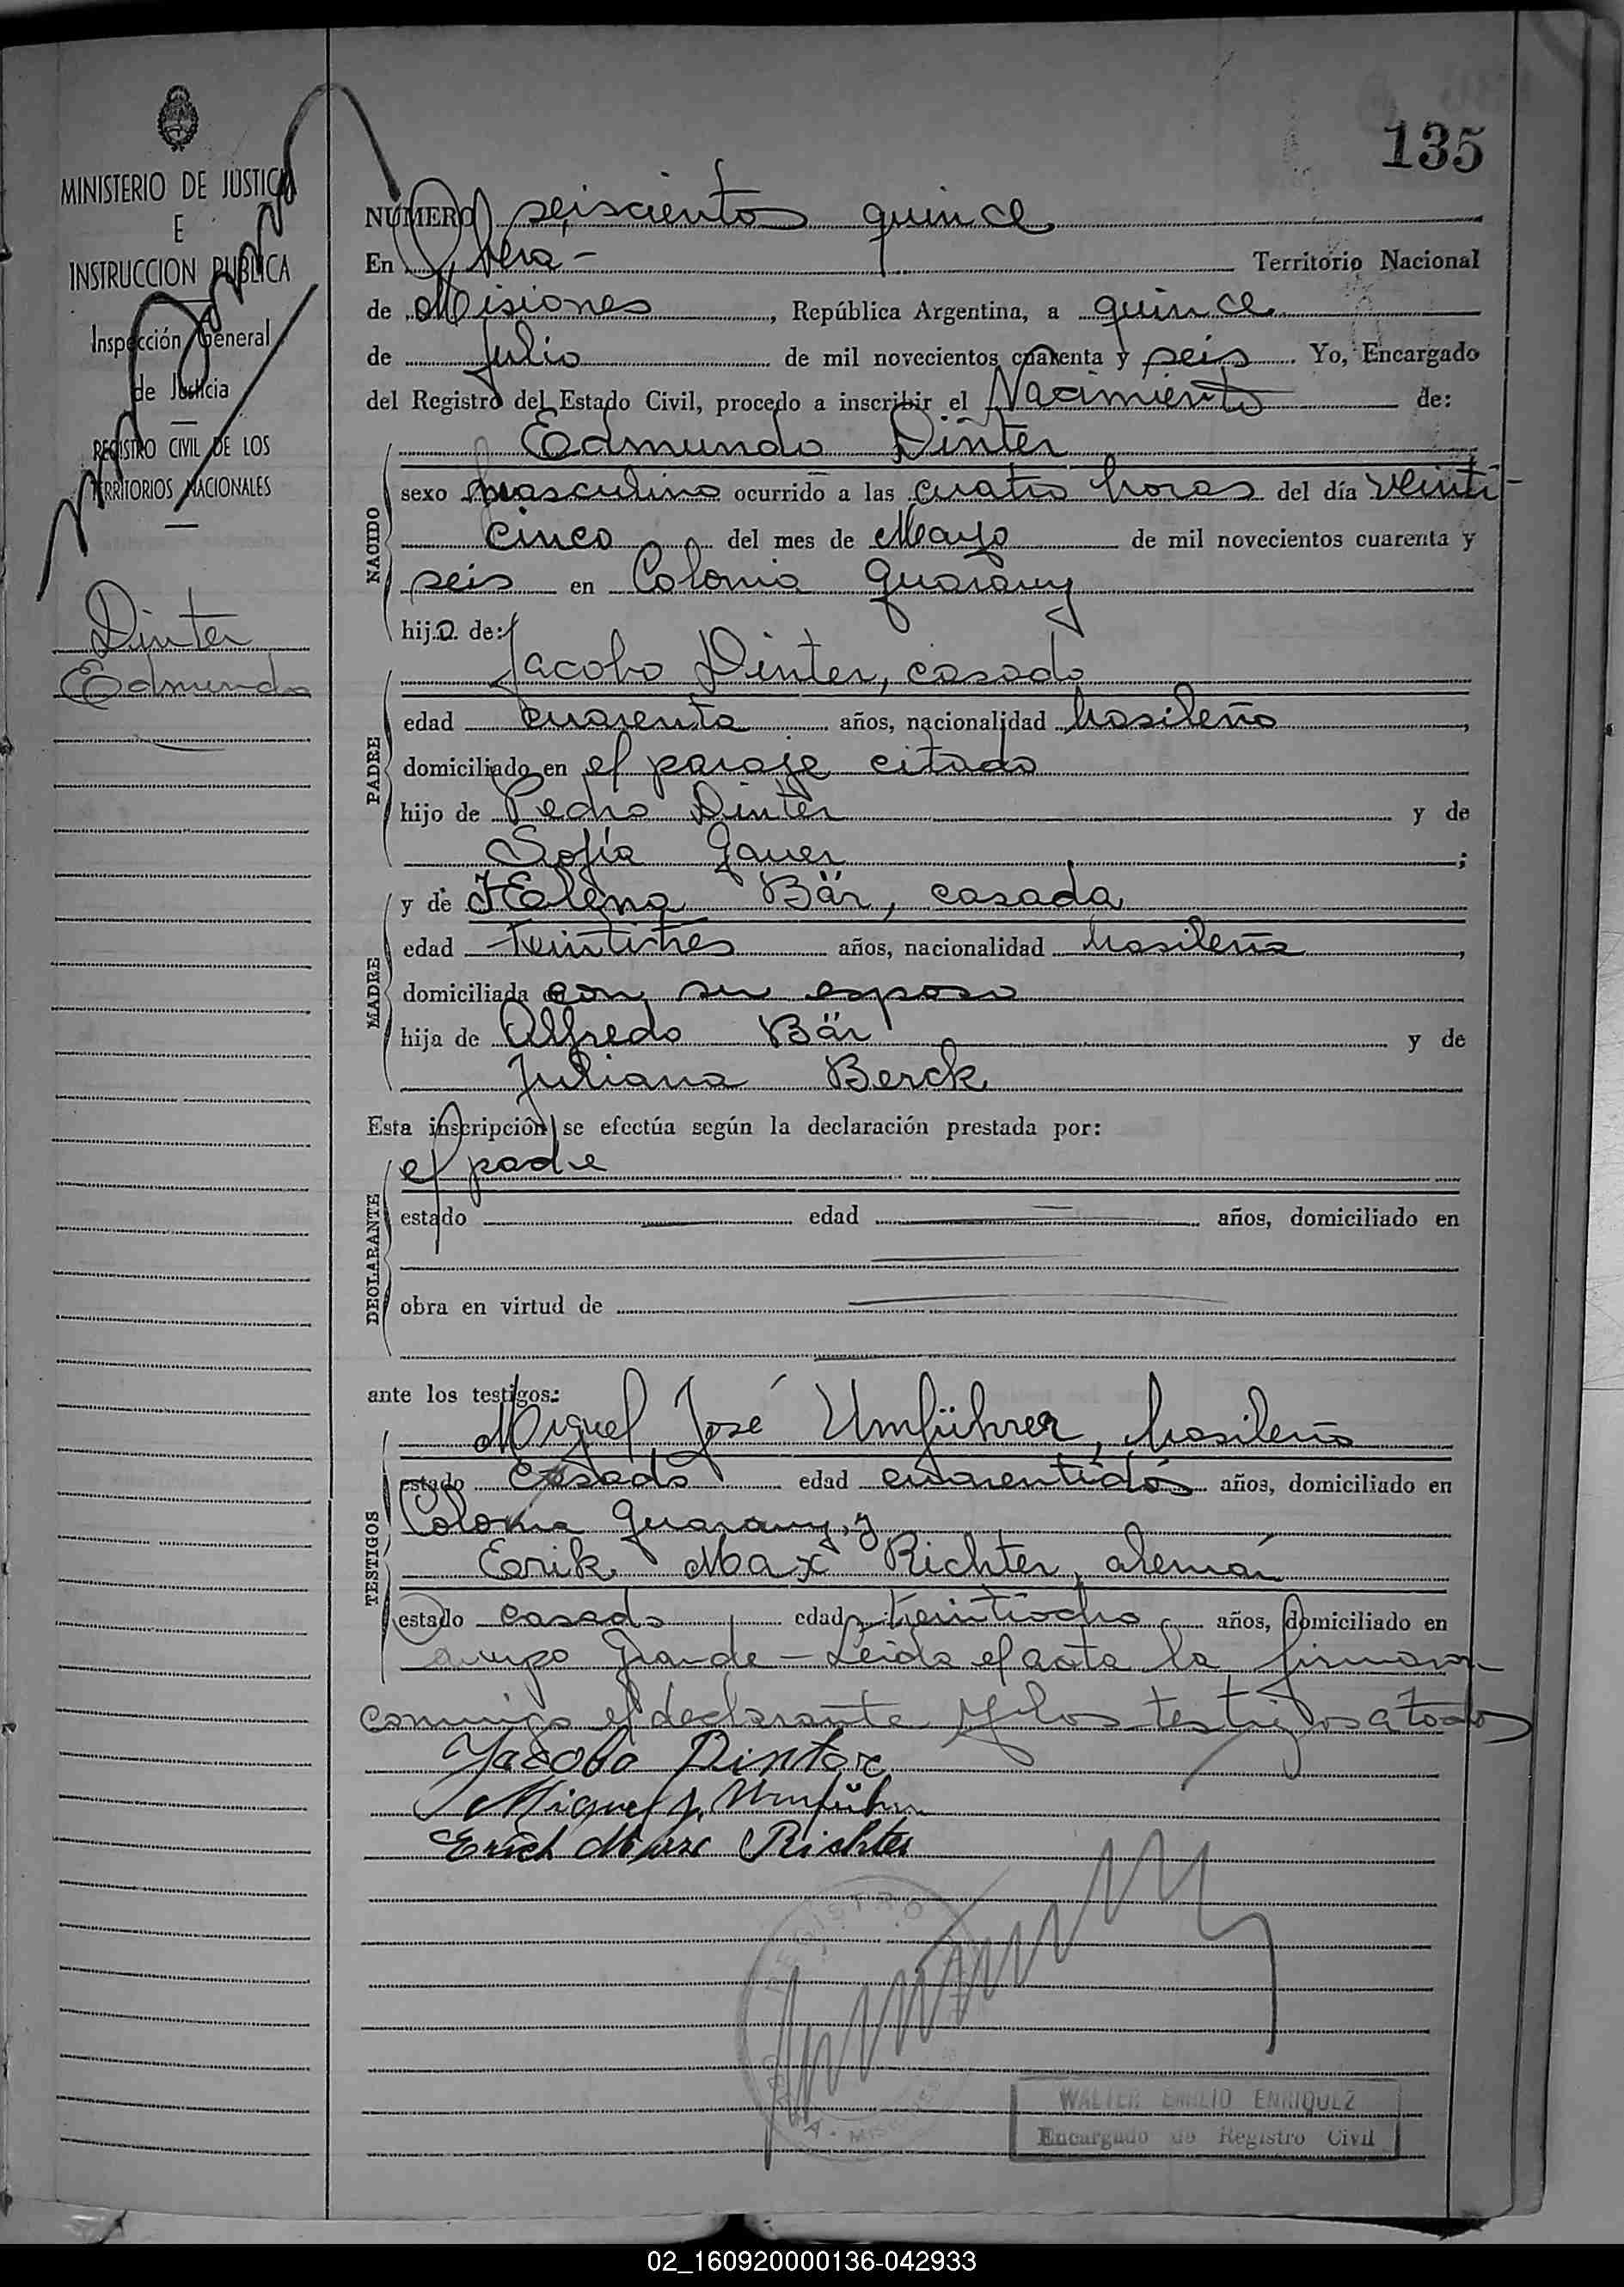 135
MINISTERIO DE JUSTICIA
E
INSTRUCCION PUBLICA
Inspección General
de Justicia
REGISTRO CIVIL DE LOS
TERRITORIOS NACIONALES
Dinter
Edmundo
NUMERO seiscientos quince
En Obera - Territorio Nacional
de Misiones, República Argentina, a quince
de Julio de mil novecientos cuarenta y seis. Yo, Encargado
del Registro del Estado Civil, procedo a inscribir el Nacimiento de:
Edmundo Dinter
NACIDO
sexo masculino ocurrido a las cuatro horas del día veinti-
cinco del mes de Mayo de mil novecientos cuarenta y
seis en Colonia Guarany
hijo de:
Jacobo Dinter, casado
PADRE
edad cuarenta años, nacionalidad brasileño,
domiciliado en el paraje citado
hijo de Pedro Dinter y de
Sofía Gauer;
y de Helena Bär, casada
MADRE
edad treintitres años, nacionalidad brasileña,
domiciliada con su esposo
hija de Alfredo Bär y de
Juliana Berck
Esta inscripción se efectúa según la declaración prestada por:
el padre
DECLARANTE
estado edad años, domiciliado en
obra en virtud de
ante los testigos:
Miguel José Umführer, brasileño
TESTIGOS
estado casado edad cuarentidós años, domiciliado en
Colonia Guarany, y
Erik Max Richter, alemán
estado casado edad treintiocho años, domiciliado en
Campo Grande - Leida el acta la firman
conmigo el declarante y los testigos a todo
Jacobo Dinter
Miguel J. Umführer
Erich Max Richter
REGISTRO
WALTER EMILIO ENRIQUEZ
Encargado de Registro Civil
02_160920000136-042933